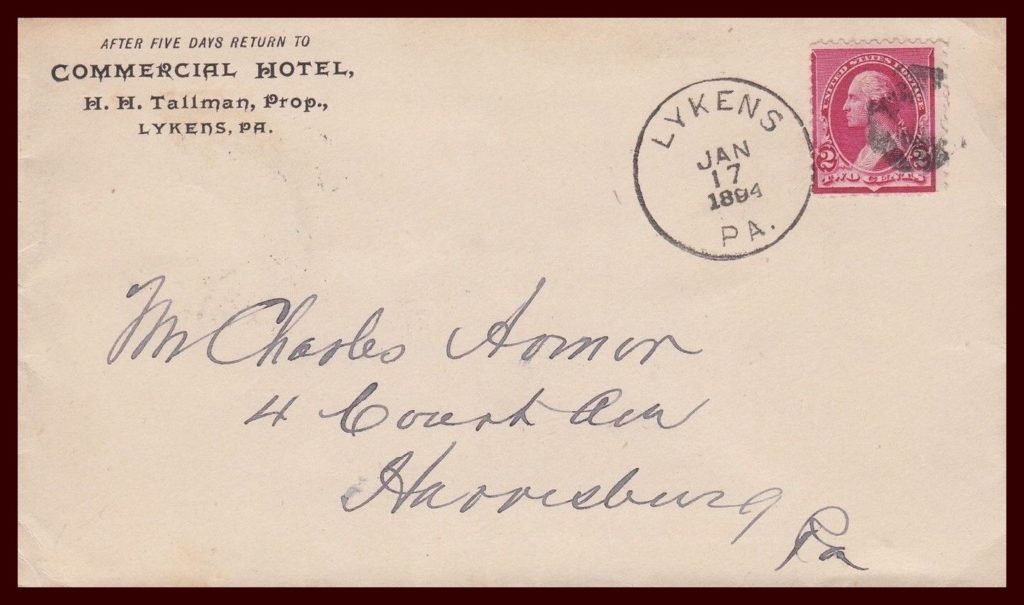 AFTER FIVE DAYS RETURN TO
COMMERCIAL HOTEL,
H. H. Tallman, Prop.,
LYKENS, PA.
LYKENS
JAN
17
1894
PA.
UNITED STATES POSTAGE
2 2
TWO CENTS
Mr Charles Armor
4 Court Ave
Harrisburg
Pa